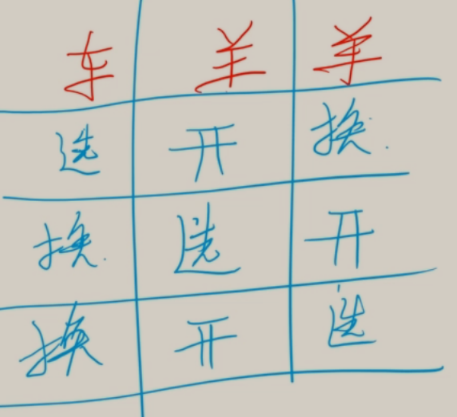 车 羊 羊
选 开 换
换 选 开
换 开 选